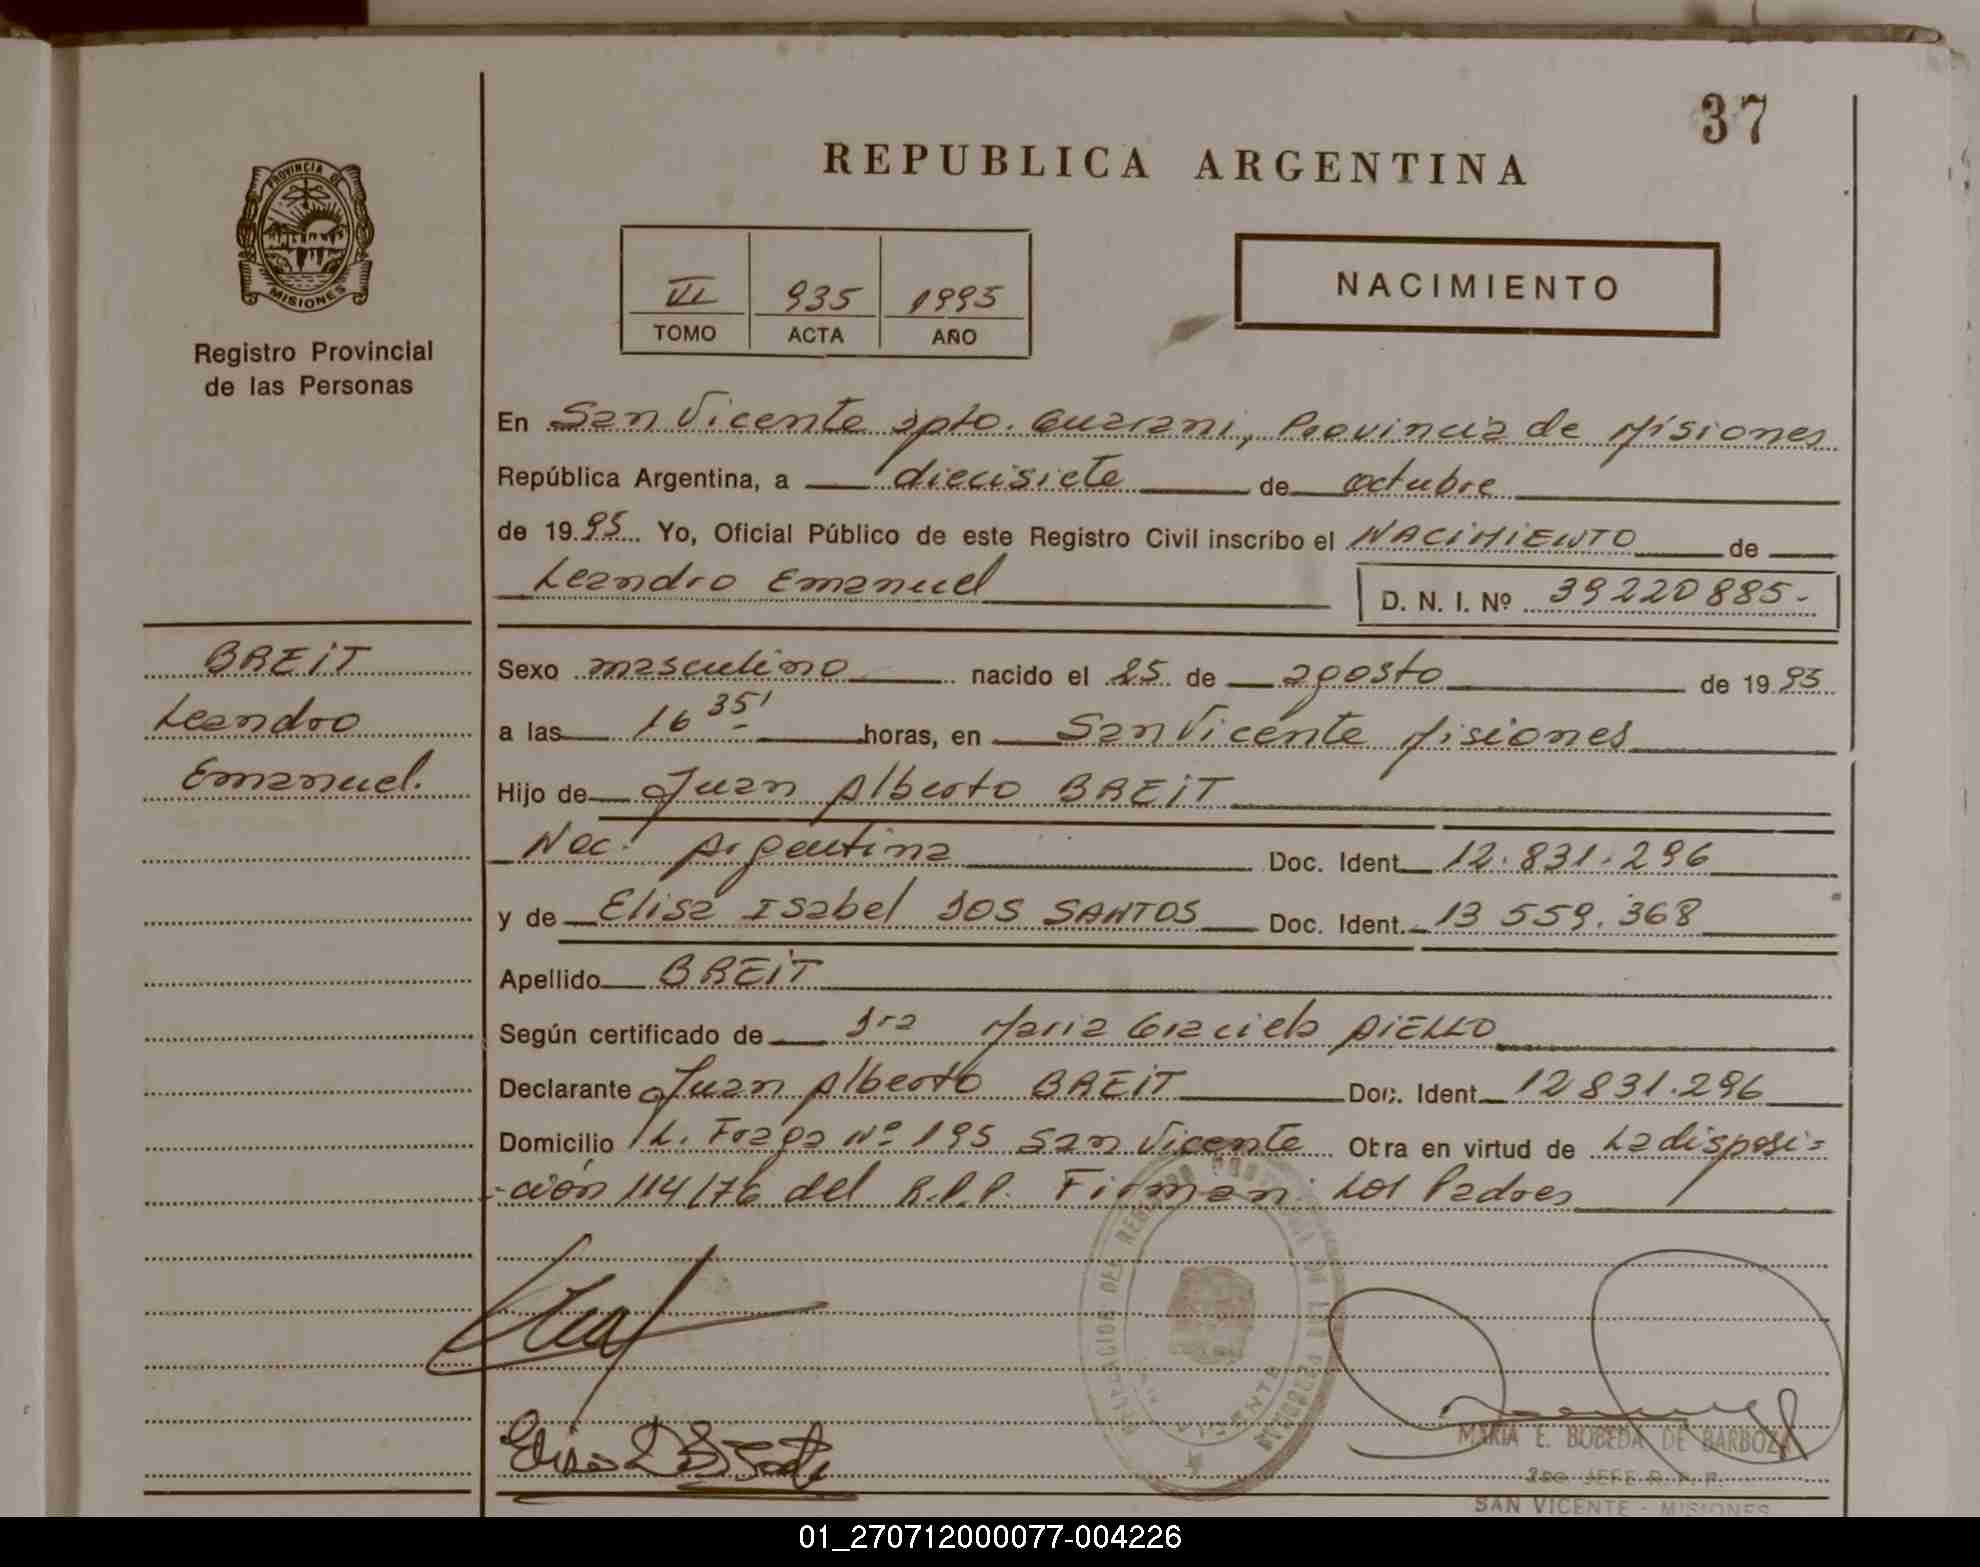 37
REPUBLICA ARGENTINA
PROVINCIA DE
MISIONES
Registro Provincial
de las Personas
VI 935 1995
TOMO ACTA AÑO
NACIMIENTO
En San Vicente Dpto. Guarani, Provincia de Misiones
República Argentina, a diecisiete de octubre
de 1995 Yo, Oficial Público de este Registro Civil inscribo el NACIMIENTO de
Leandro Emanuel D. N. I. Nº 39220885-
BREIT
Leandro
Emanuel.
Sexo masculino nacido el 25 de agosto de 1995
a las 16 35' horas, en San Vicente Misiones
Hijo de Juan Alberto BREIT
Nac. Argentina Doc. Ident. 12.831.296
y de Elisa Isabel DOS SANTOS Doc. Ident. 13 559.368
Apellido BREIT
Según certificado de Dra Maria Graciela AIELLO
Declarante Juan Alberto BREIT Doc. Ident. 12831.296
Domicilio L. Fraga Nº 195 San Vicente Obra en virtud de La disposi=
-ción 114/76 del R.P.P. Firman: Los Padres
MARIA E. BOBEDA DE BARBOZA
JEFE R. P. P.
SAN VICENTE - MISIONES
01_270712000077-004226